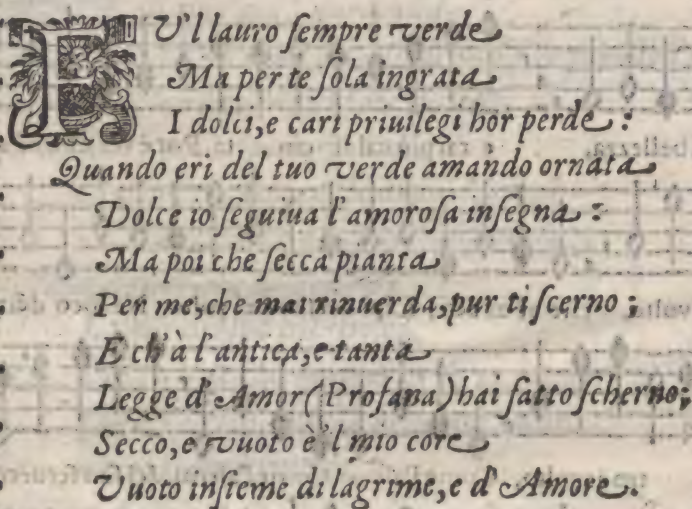 FV'l lauro ſempre verde
Ma per te ſola ingrata
I dolci, e cari priuilegi hor perde:
Quando eri del tuo verde amando ornata
Dolce io ſeguiua l'amoroſa inſegna:
Ma poi che ſecca pianta
Per me, che mai rinuerda, pur ti ſcerno;
E ch'à l'antica, e tanta
Legge d'Amor (Profana) hai fatto ſcherno;
Secco, e vuoto è'l mio core
Vuoto inſieme di lagrime, e d'Amore.